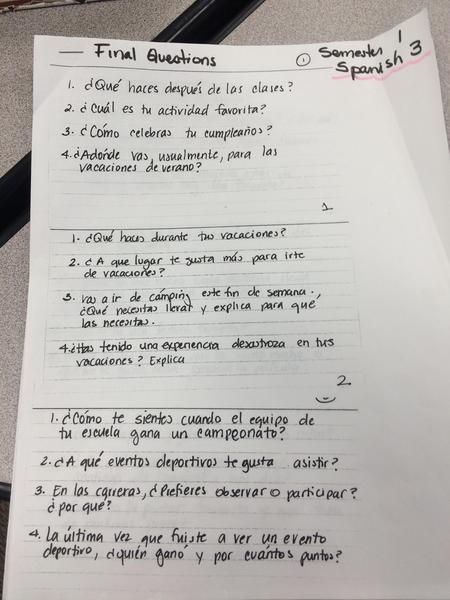 — Final Questions
① Semester 1
Spanish 3
1. ¿Qué haces después de las clases?
2. ¿Cuál es tu actividad favorita?
3. ¿Cómo celebras tu cumpleaños?
4. ¿Adónde vas, usualmente, para las
vacaciones de verano?
1
1. ¿Qué haces durante tus vacaciones?
2. ¿A que lugar te gusta más para irte
de vacaciones?
3. Vas a ir de cámping este fin de semana.,
¿Qué necesitas llevar y explica para qué
las necesitas.
4. ¿Has tenido una experiencia desastroza en tus
vacaciones? Explica
2
1. ¿Cómo te sientes cuando el equipo de
tu escuela gana un campeonato?
2. ¿A qué eventos deportivos te gusta asistir?
3. En las carreras, ¿Prefieres observar o participar?
¿por qué?
4. La última vez que fuiste a ver un evento
deportivo, ¿quién ganó y por cuántos puntos?